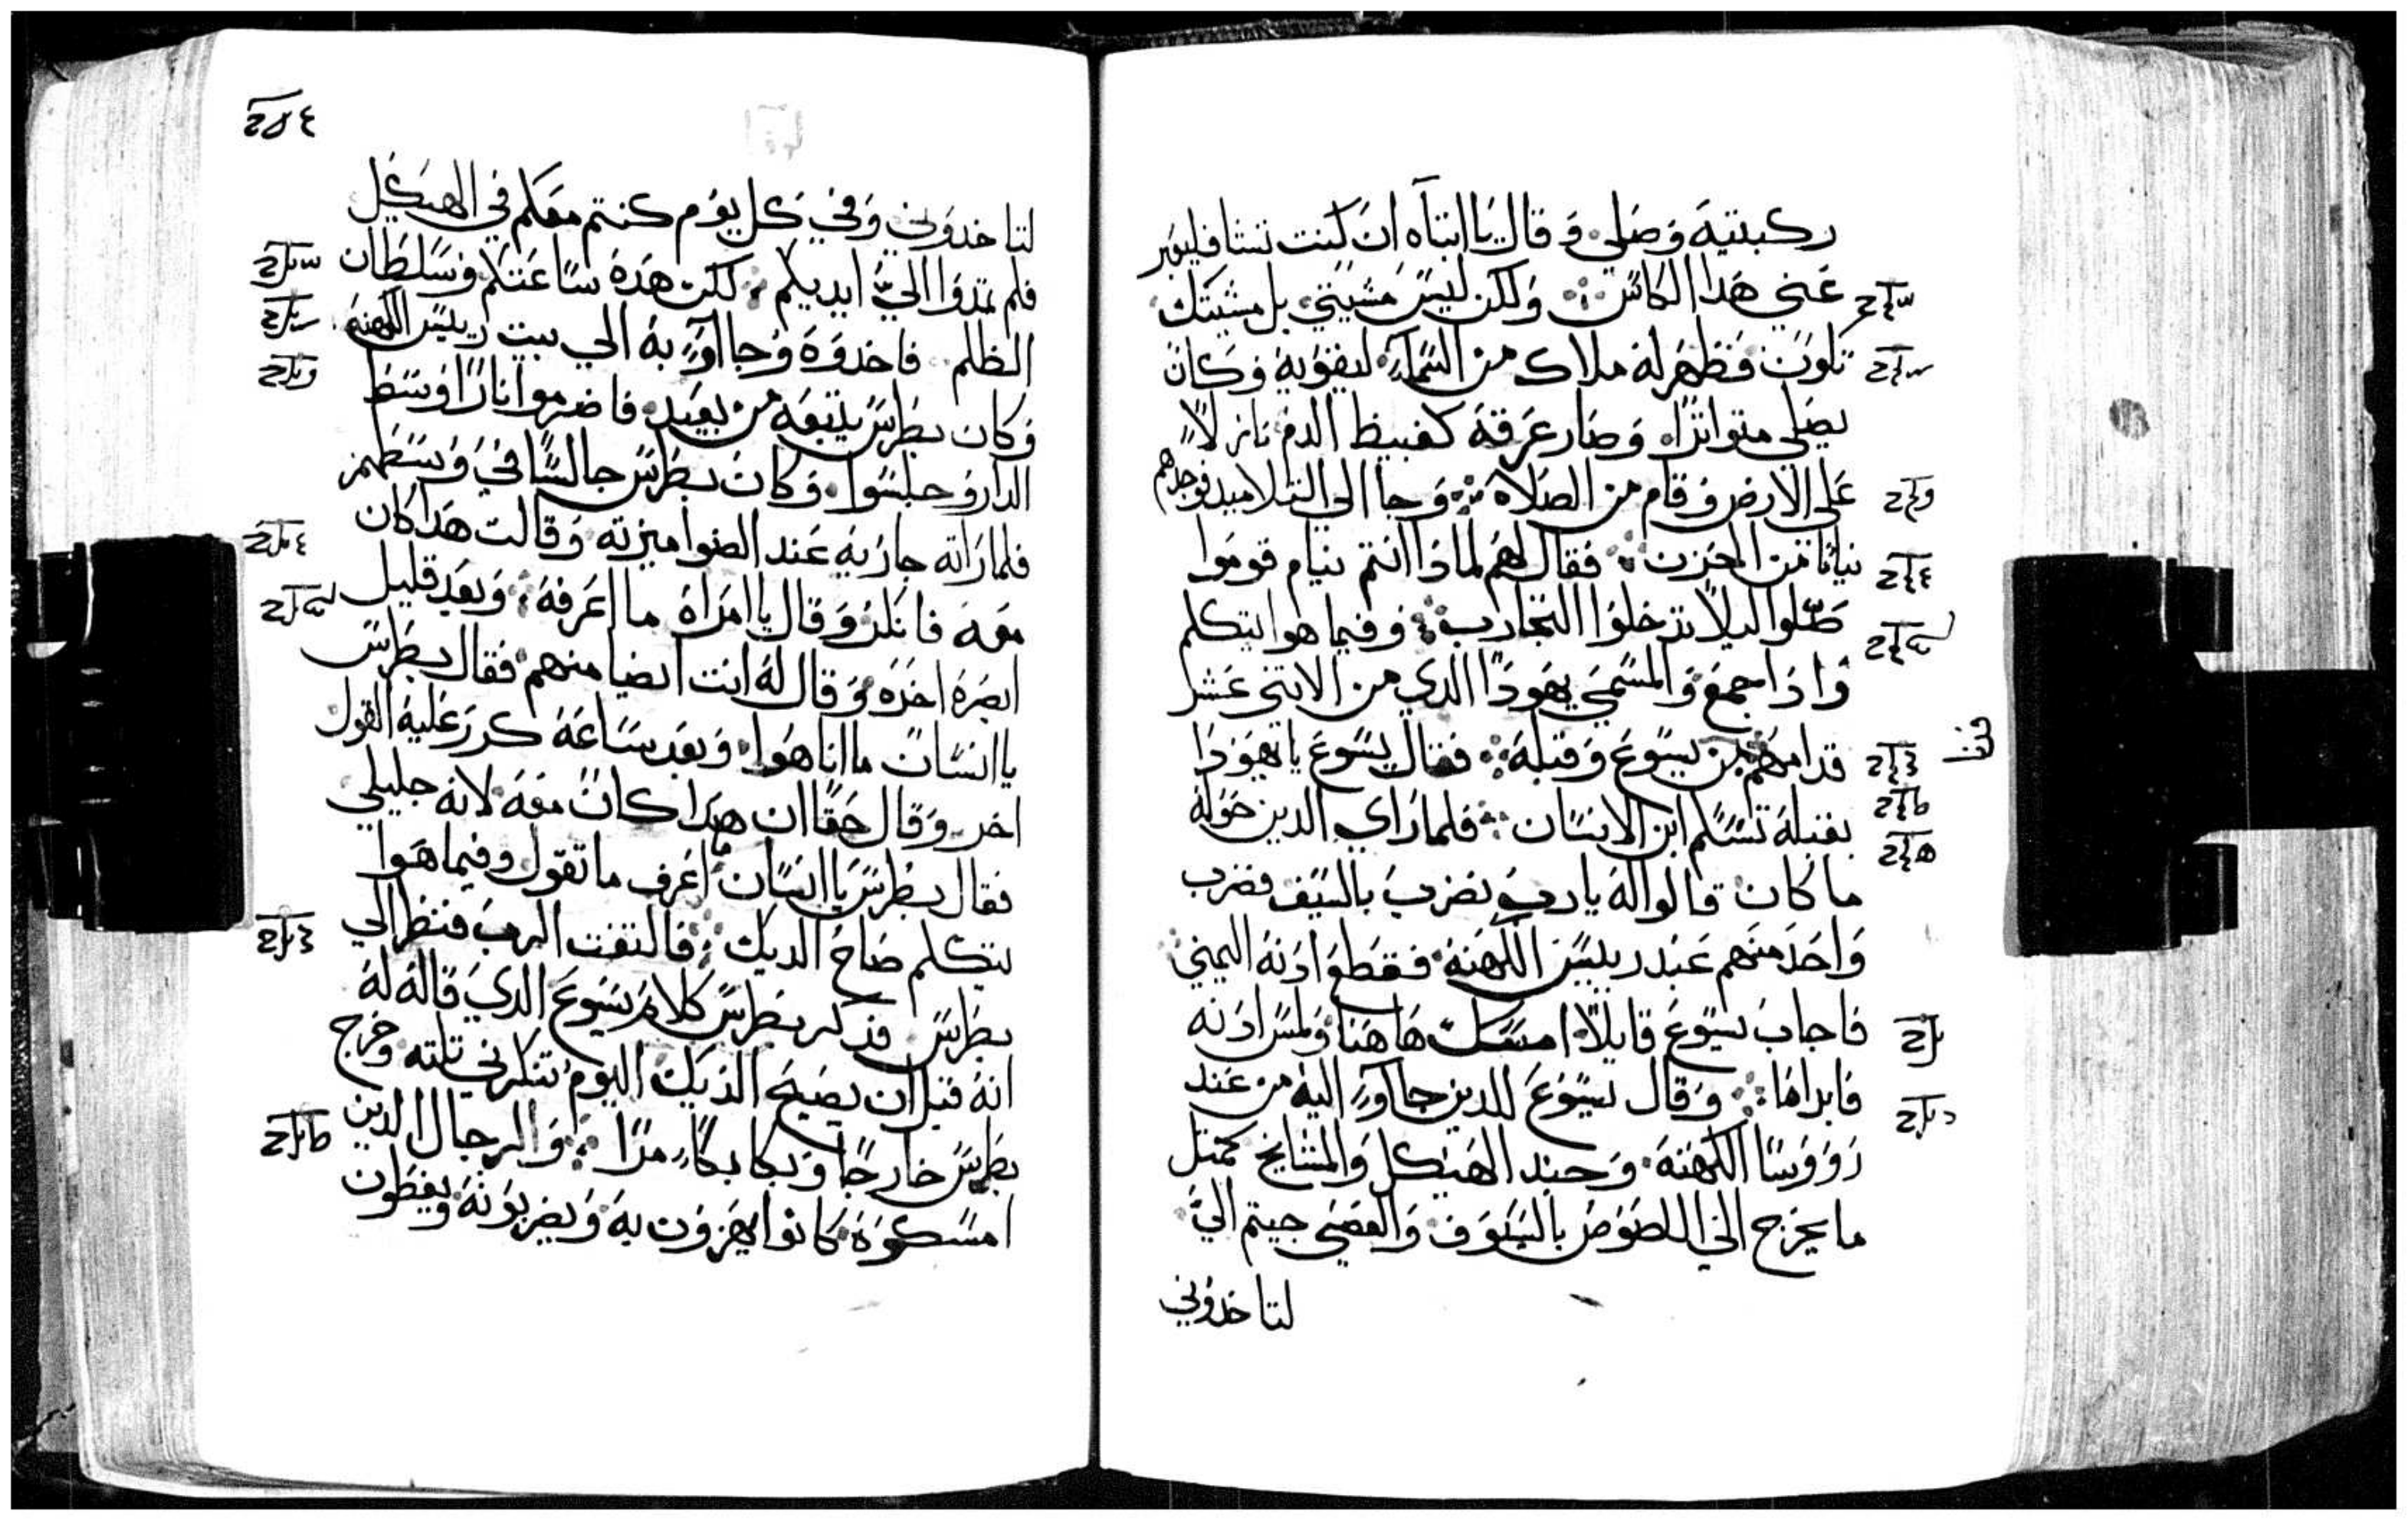 ركبتيه وصلي وقال يا ابتاه ان كنت تشا فليعبر
عني هدا الكاس ولكن ليس مشيتي بل مشيتك
تكون فظهر له ملاك من السمآء ليقويه وكان
يصلي متواترا وصار عرقه كغبيط الدم نازلاً
علي الارض وقام من الصلاة وجا الي التلاميد فوجدهم
نياما من الحزن فقال لهم لمادا انتم نيام قوموا
صلوا ليلا تدخلوا التجارب وفيما هوا يتكلم
وادا جمع والمسمي يهودا الدي من الاتني عشر
قدامهم من يسوع وقبله فقال يسوع يا يهودا
بقبلة تسلم ابن الانسان فلما راي الدين حوله
ما كان قالوا له يارب نضرب بالسيف فضرب
واحد منهم عبد رييس الكهنة فقطع ادنه اليمني
فاجاب يسوع قايلا امسك هاهنا ولمس ادنه
فابراها وقال يسوع للدين جاآوء اليه من عند
رووسا الكهنة وجند الهيكل والمشايخ كمتل
ما يخرج الي اللصوص بالسيوف والعصي جيتم الي
لتاخدوني
لتاخدوني وفي كل يوم كنتم معكم في الهيكل
فلم تمدوا الي ايديكم لكن هده ساعتكم وسلطان
الظلم فاخدوه وجاآوء به الي بيت رييس الكهنة
وكان بطرس يتبعه من بعيد فاضرموا نارا وسط
الدار وجلسوا وكان بطرس جالسا في وسطهم
فلما راته جاريه عند الضوا ميزته وقالت هدا كان
معه فانكر وقال يا امراة ما اعرفه وبعد قليل
ابصره اخر وقال له انت ايضا منهم فقال بطرس
يا انسان ما انا هوا وبعد ساعة كرر عليه القول
اخر وقال حقا ان هدا كان معه لانه جليلي
فقال بطرس يا انسان ما اعرف ما تقول وفيما هوا
يتكلم صاح الديك فالتفت الرب فنظر الي
بطرس فدكر بطرس كلام يسوع الدي قاله له
انه قبل ان يصيح الديك اليوم تنكرني تلته وخرج
بطرس خارجا وبكا بكاء مرا والرجال الدين
امسكوه كانوا يهزون به ويضربونه ويغطون